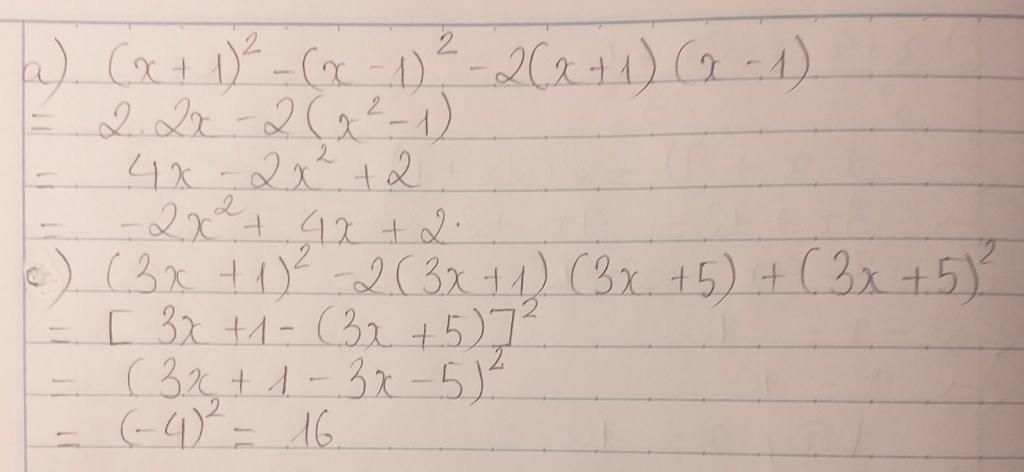 a) (x + 1)² - (x - 1)² - 2(x + 1) (x - 1)
= 2.2x - 2(x² - 1)
= 4x - 2x² + 2
= -2x² + 4x + 2.
c) (3x + 1)² - 2(3x + 1) (3x + 5) + (3x + 5)²
= [3x + 1 - (3x + 5)]²
= (3x + 1 - 3x - 5)²
= (-4)² = 16